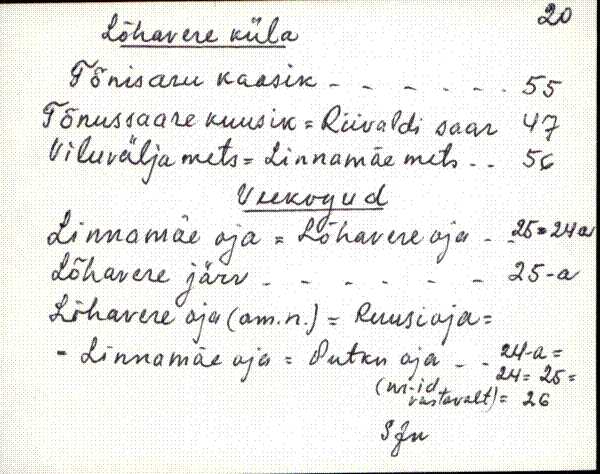 20
Lõhavere küla
Tõnisaru kaasik - - - - - - 55
Tõnussaare kuusik = Riivaldi saar 47
Viluvälja mets = Linnamäe mets - - 56
Veekogud
Linnamäe oja = Lõhavere oja - - 25 = 24a
Lõhavere järv - - - - - - 25-a
Lõhavere oja (am.n.) = Ruusioja =
- Linnamäe oja = Putku oja - - 24-a =
24 = 25 =
(nr-id
vastavalt) = 26